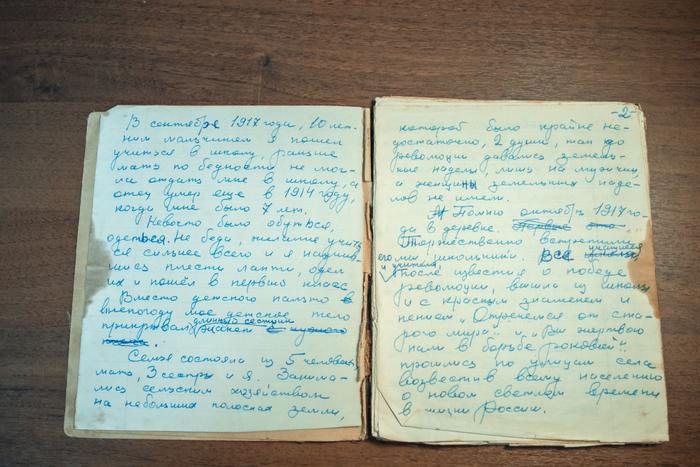 В сентябре 1917 года, 10 лет-
ним мальчиком я пошел
учиться в школу, раньше
мать по бедности не мог-
ла отдать мне в школу, а
отец умер еще в 1914 году,
когда мне было 7 лет.
Невочто было обуться,
одеться. Не беда, желание учить
ся сильнее всего и я научив-
шись плести лапти, одел
их и пошёл в первый класс.
Вместо детского пальто в
непогоду мое детское тело
длинный сестрин
прикрывал
Семья состояла из 5 человек,
мать, 3 сестры и я. Занима-
лись сельским хозяйством
на небольших полосках земли,
-2-
которой было крайне не-
достаточно, 2 души, так до
революции давались земель-
ные наделы лишь на мужчин,
а женщины земельных наде-
лов не имели.
Помню октябрь 1917 го-
да в деревне. Первые это
Торжественно встретили
учащиеся
его мы школьники. Все
и учителя
После известия о победе
революции, вышли из школы
и с красным знаменем и
пением „Отречемся от ста-
рого мира" и „Вы жертвою
пали в борьбе роковой"
прошлись по улицам села
возвестив всему населению
о новом светлом времени
в жизни России.